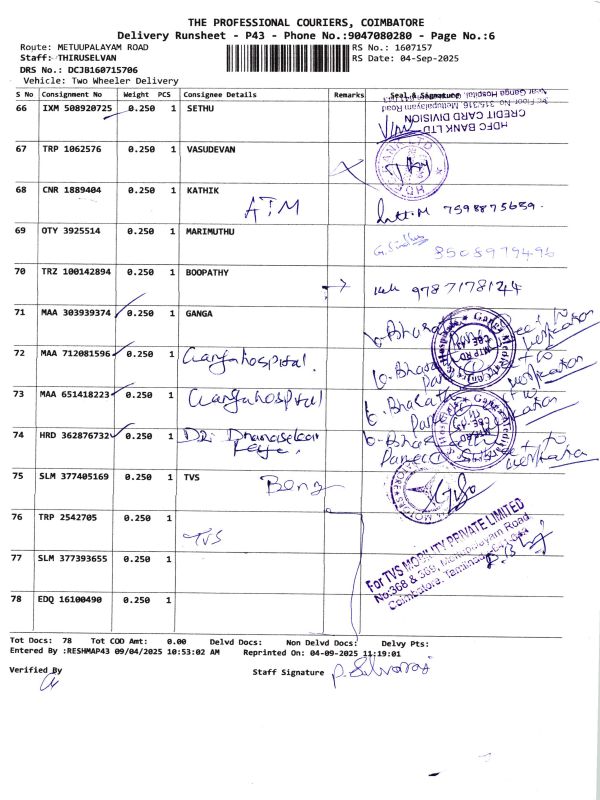 THE PROFESSIONAL COURIERS, COIMBATORE
Delivery Runsheet - P43 - Phone No.:9047080280 - Page No.:6
Route: METUUPALAYAM ROAD
RS No.: 1607157
Staff: THIRUSELVAN
RS Date: 04-Sep-2025
DRS No.: DCJB160715706
Vehicle: Two Wheeler Delivery
S No Consignment No Weight PCS Consignee Details Remarks Seal & Signature
66 IXM 508920725 0.250 1 SETHU
HDFC BANK LTD
CREDIT CARD DIVISION
67 TRP 1062576 0.250 1 VASUDEVAN
68 CNR 1889404 0.250 1 KATHIK
ATM
7598875659.
69 OTY 3925514 0.250 1 MARIMUTHU
G. Sindhu 8508979496
70 TRZ 100142894 0.250 1 BOOPATHY
9787178124
71 MAA 303939374 0.250 1 GANGA
verification
72 MAA 712081596 0.250 1 Ganga hospital.
verification
73 MAA 651418223 0.250 1 Ganga hospital
verification
74 HRD 362876732 0.250 1 DR. Dhanasekar
verification
75 SLM 377405169 0.250 1 TVS
Benz
76 TRP 2542705 0.250 1
TVS
For TVS MOBILITY PRIVATE LIMITED
No:368 & 369, Mettupalayam Road
Coimbatore, Tamilnadu-641 043
77 SLM 377393655 0.250 1
78 EDQ 16100490 0.250 1
Tot Docs: 78 Tot COD Amt: 0.00 Delvd Docs: Non Delvd Docs: Delvy Pts:
Entered By :RESHMAP43 09/04/2025 10:53:02 AM Reprinted On: 04-09-2025 11:19:01
Verified By
Staff Signature P. Selvaraj